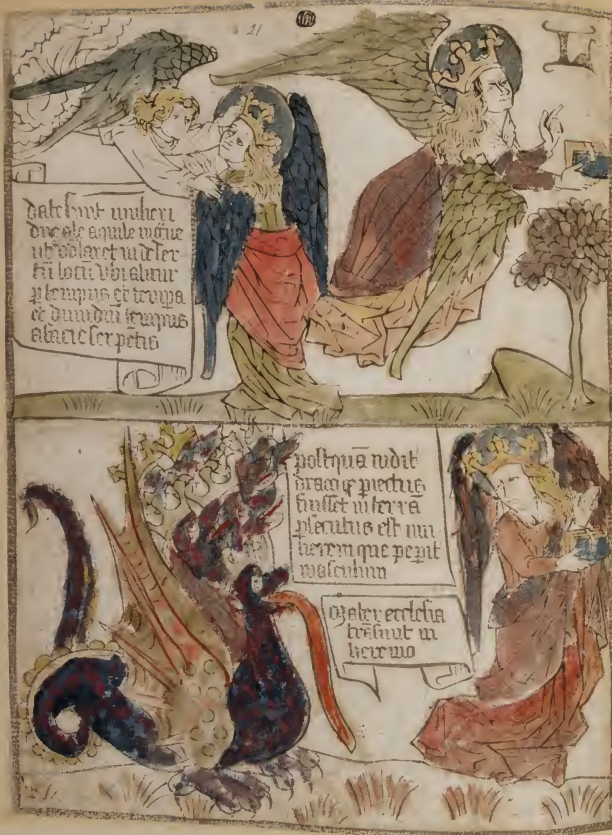 21
L
date sunt mulieri
due ale aquile magne
ut volaret in deser
tū locū ubi alitur
p tempus et tempa
et dimidiū tempus
a facie serpētis
postquā vidit
draco ꝙ piectus
fuisset in terrā
psecutus est mu
lierem que pepit
masculum
mater ecclesia
trāsiuit in
heremo